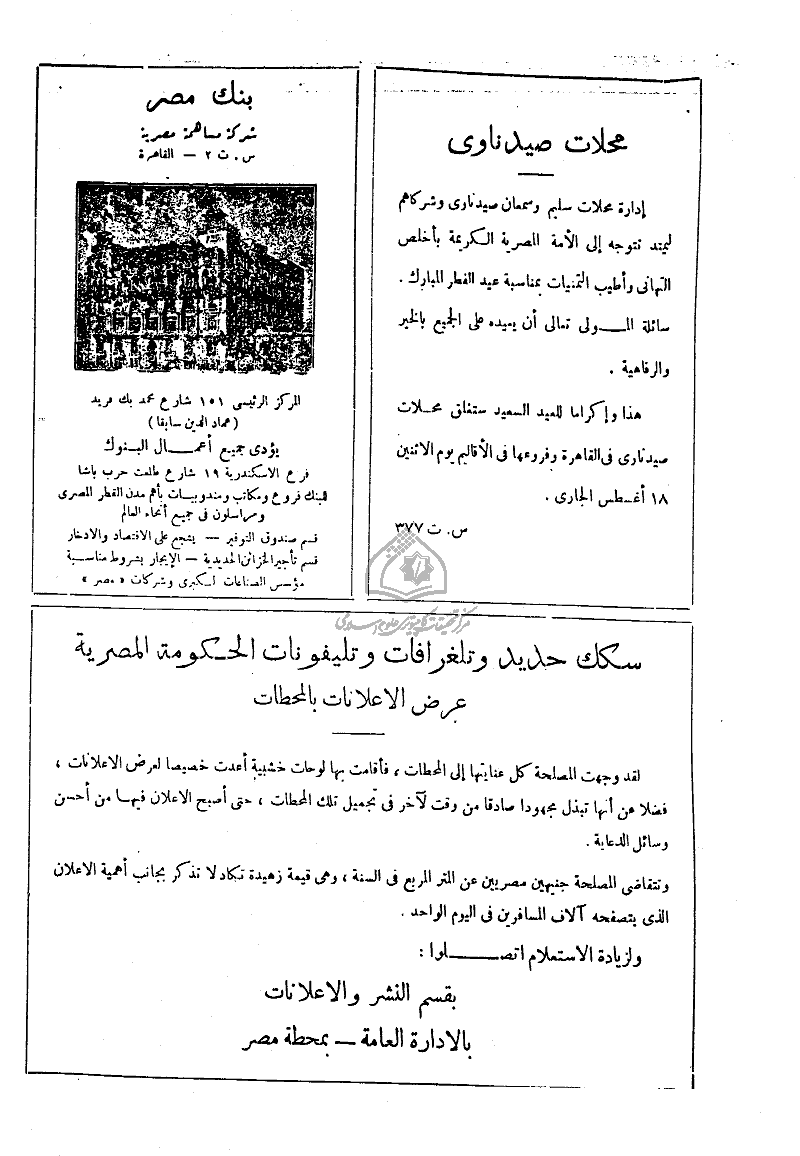 محلات صيدناوى
إدارة محلات سليم وسمعان صيدناوى وشركاهم
ليمتد تتوجه إلى الأمة المصرية الكريمة بأخلص
التهانى وأطيب التمنيات بمناسبة عيد الفطر المبارك .
سائلة المـــولى تعالى أن يعيده على الجميع بالخير
والرفاهية .
هذا وإكراما للعيد السعيد ستغلق محـلات
صيدناوى فى القاهرة وفروعها فى الأقاليم يوم الاثنين
١٨ أغسطس الجارى .
س. ت ٣٧٧
بنك مصر
شركة مساهمة مصرية
س . ت ٢ — القاهرة
المركز الرئيسى ١٥١ شارع محمد بك فريد
( عماد الدين سابقا )
يؤدى جميع أعمـــال البـنوك
فرع الاسكندرية ١٩ شارع طلعت حرب باشا
للبنك فروع ومكاتب ومندوبيات بأهم مدن القطر المصرى
ومراسلون فى جميع أنحاء العالم
قسم صندوق التوفير — يشجع على الاقتصاد والادخار
قسم تأجير الخزائن الحديدية — الإيجار بشروط مناسبة
مؤسس الصناعات الكبرى وشركات « مصر »
مركز تحقيقات كامپيوترى علوم اسلامى
سكك حديد وتلغرافات وتليفونات الحـكومة المصرية
عرض الاعلانات بالمحطات
لقد وجهت المصلحة كل عنايتها إلى المحطات ، فأقامت بها لوحات خشبية أعدت خصيصا لعرض الاعلانات ،
فضلا عن أنها تبذل مجهودا صادقا من وقت لآخر فى تجميل تلك المحطات ، حتى أصبح الاعلان فيهـا من أحسن
وسائل الدعاية .
وتتقاضى المصلحة جنيهين مصريين عن المتر المربع فى السنة ، وهى قيمة زهيدة تكاد لا تذكر بجانب أهمية الاعلان
الذى يتصفحه آلاف المسافرين فى اليوم الواحد .
ولزيادة الاستعلام اتصـــــلوا :
بقسم النشر والاعلانات
بالادارة العامة — بمحطة مصر